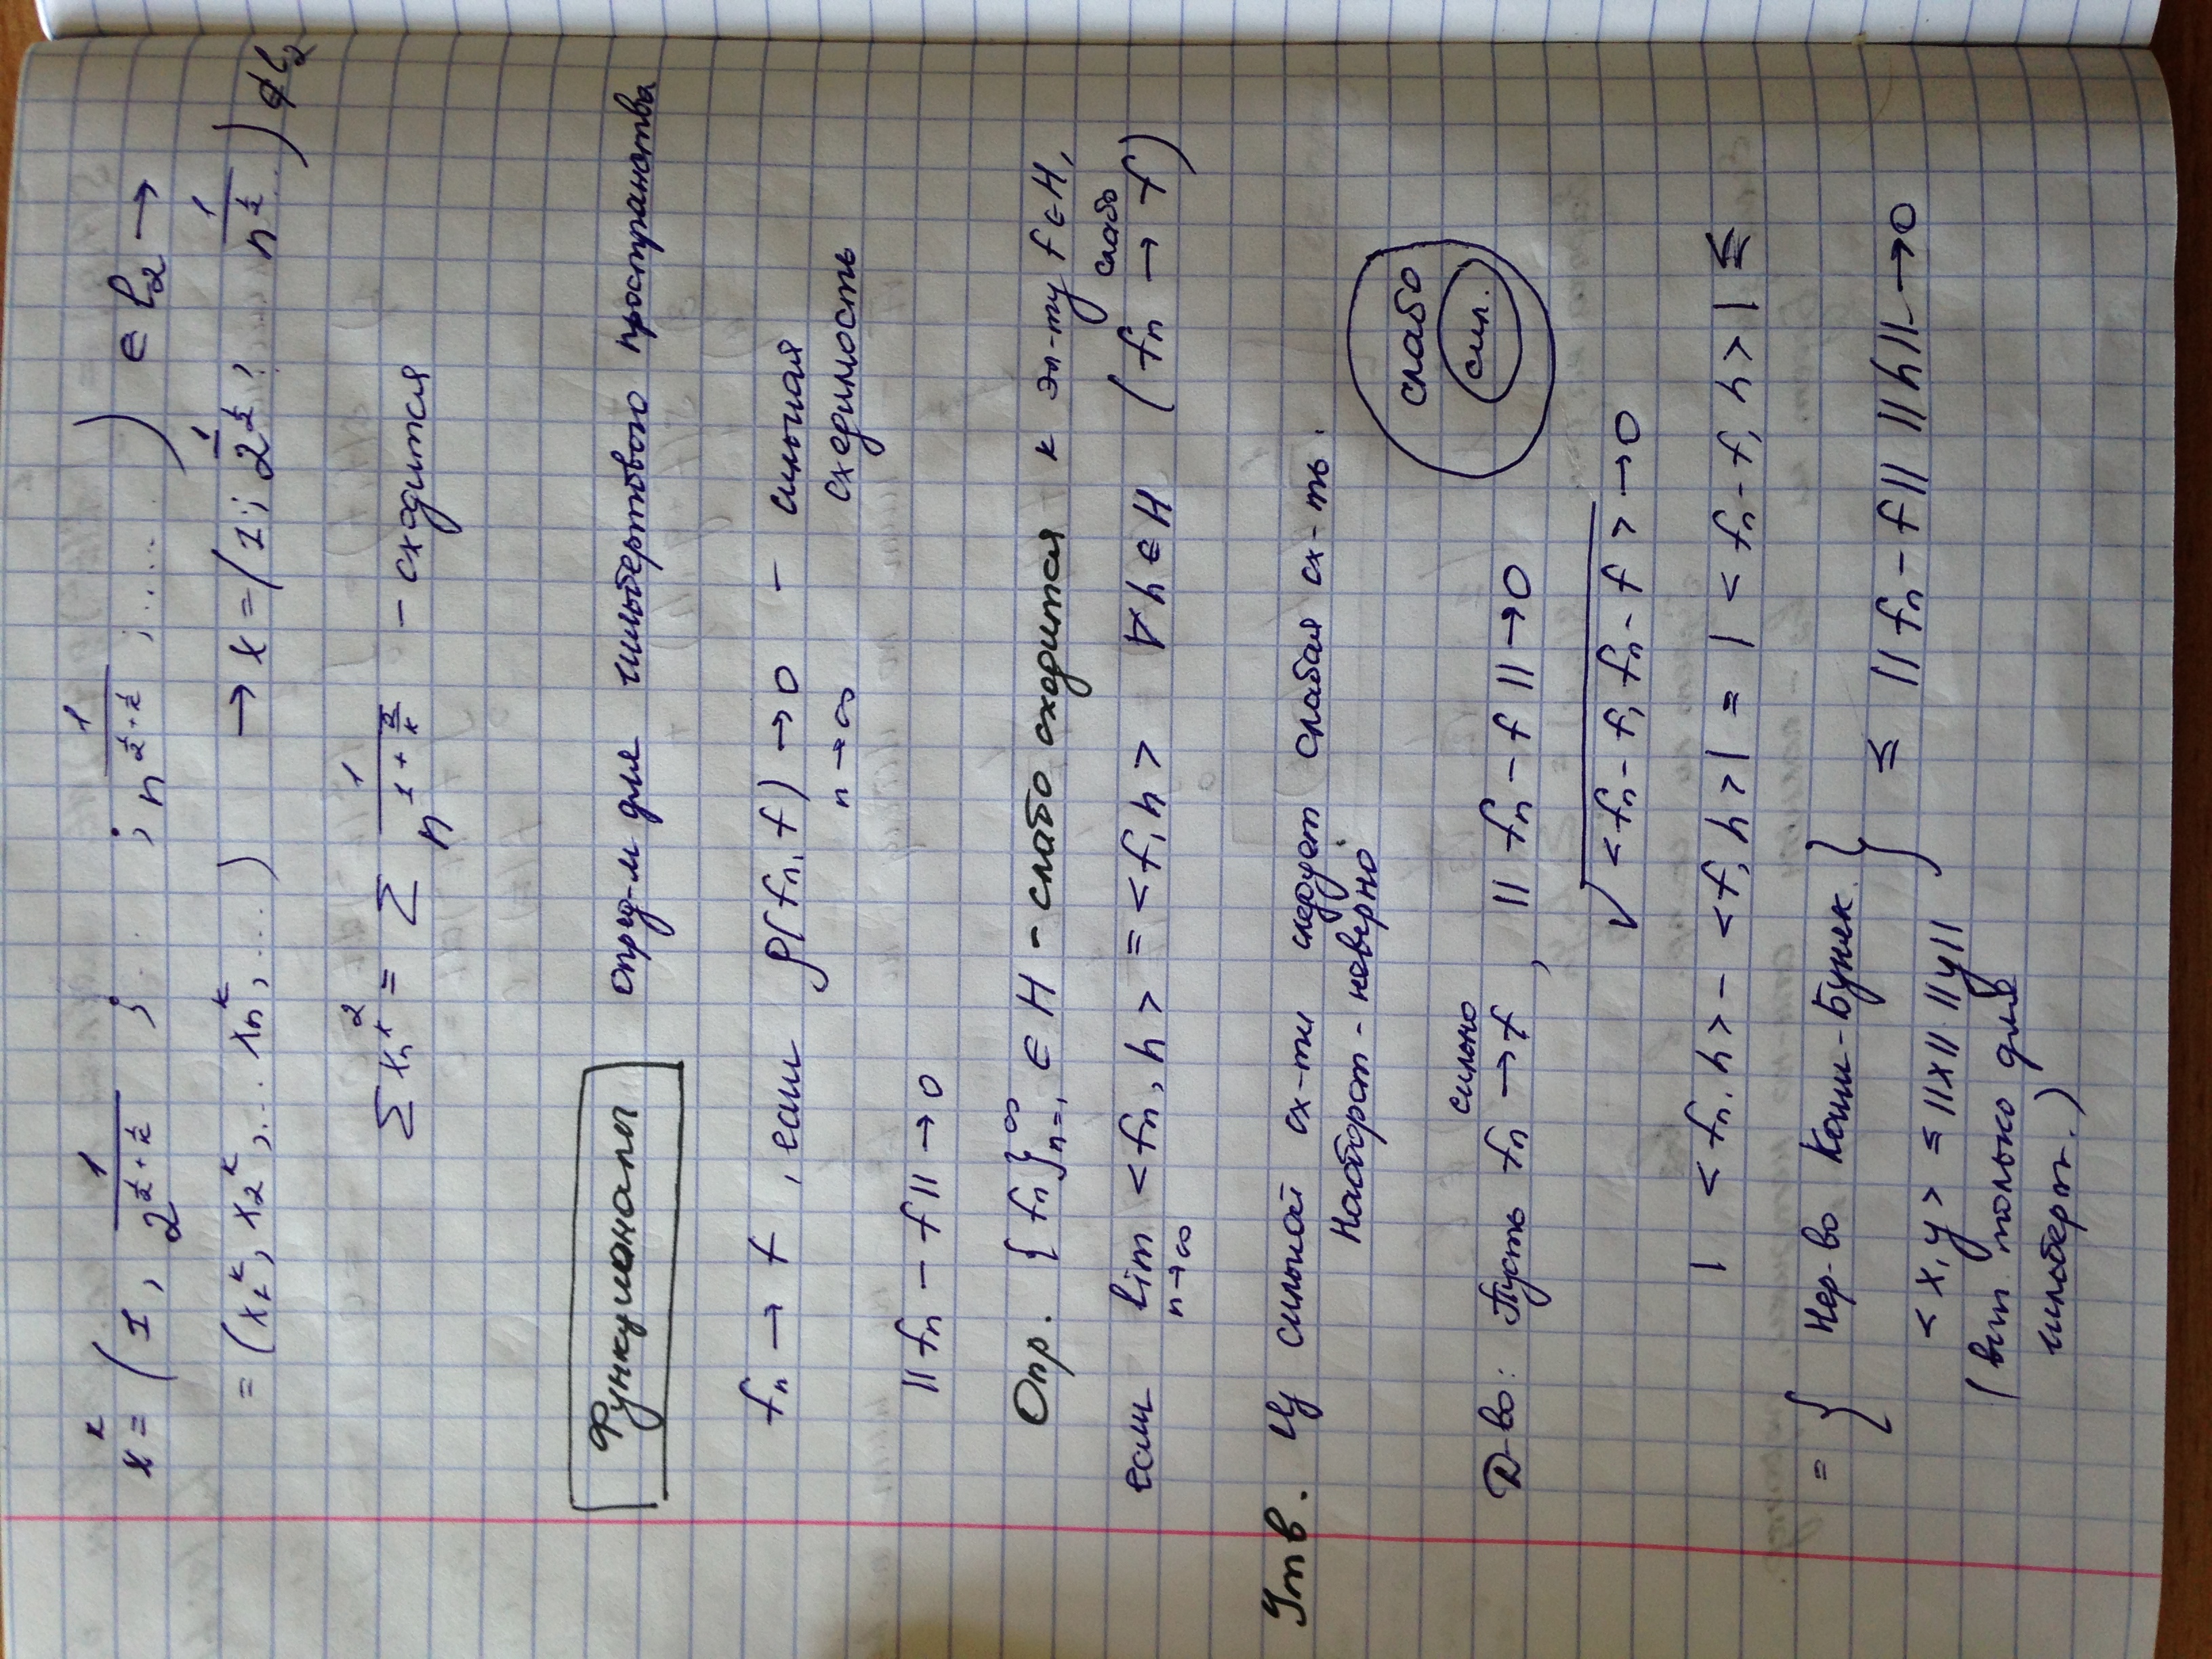 x^k = (1, 1/2^{1/2+1/k}; ; 1/n^{1/2+1/k}; ....) ∈ l_2 →
= (x_1^k, x_2^k, ... x_n^k, ....) → x = (1; 1/2^{1/2}, 1/n^{1/2} ...) ∉ l_2
∑ x_n^{k 2} = ∑ 1/n^{1+2/k} - сходится
Функционалы опред-м для гильбертового пространства
f_n → f, если ρ(f_n, f) → 0 n→∞ - сильная
сходимость
||f_n - f|| → 0
Опр. {f_n}_{n=1}^∞ ∈ H - слабо сходится к эл-ту f ∈ H,
если lim n→∞ <f_n, h> = <f, h> ∀h ∈ H (f_n слабо → f)
Утв. Из сильной сх-ти следует слабая сх-ть.
Наоборот - неверно
слабо
сил.
Д-во: Пусть f_n сильно → f, ||f_n - f|| → 0
√<f_n - f, f_n - f> → 0
|<f_n, h> - <f, h>| = |<f_n - f, h>| ≤
= { Нер-во Коши-Буняк. } ≤ ||f_n - f|| ||h|| → 0
<x, y> ≤ ||x|| ||y||
(вып. только для
гильберт.)